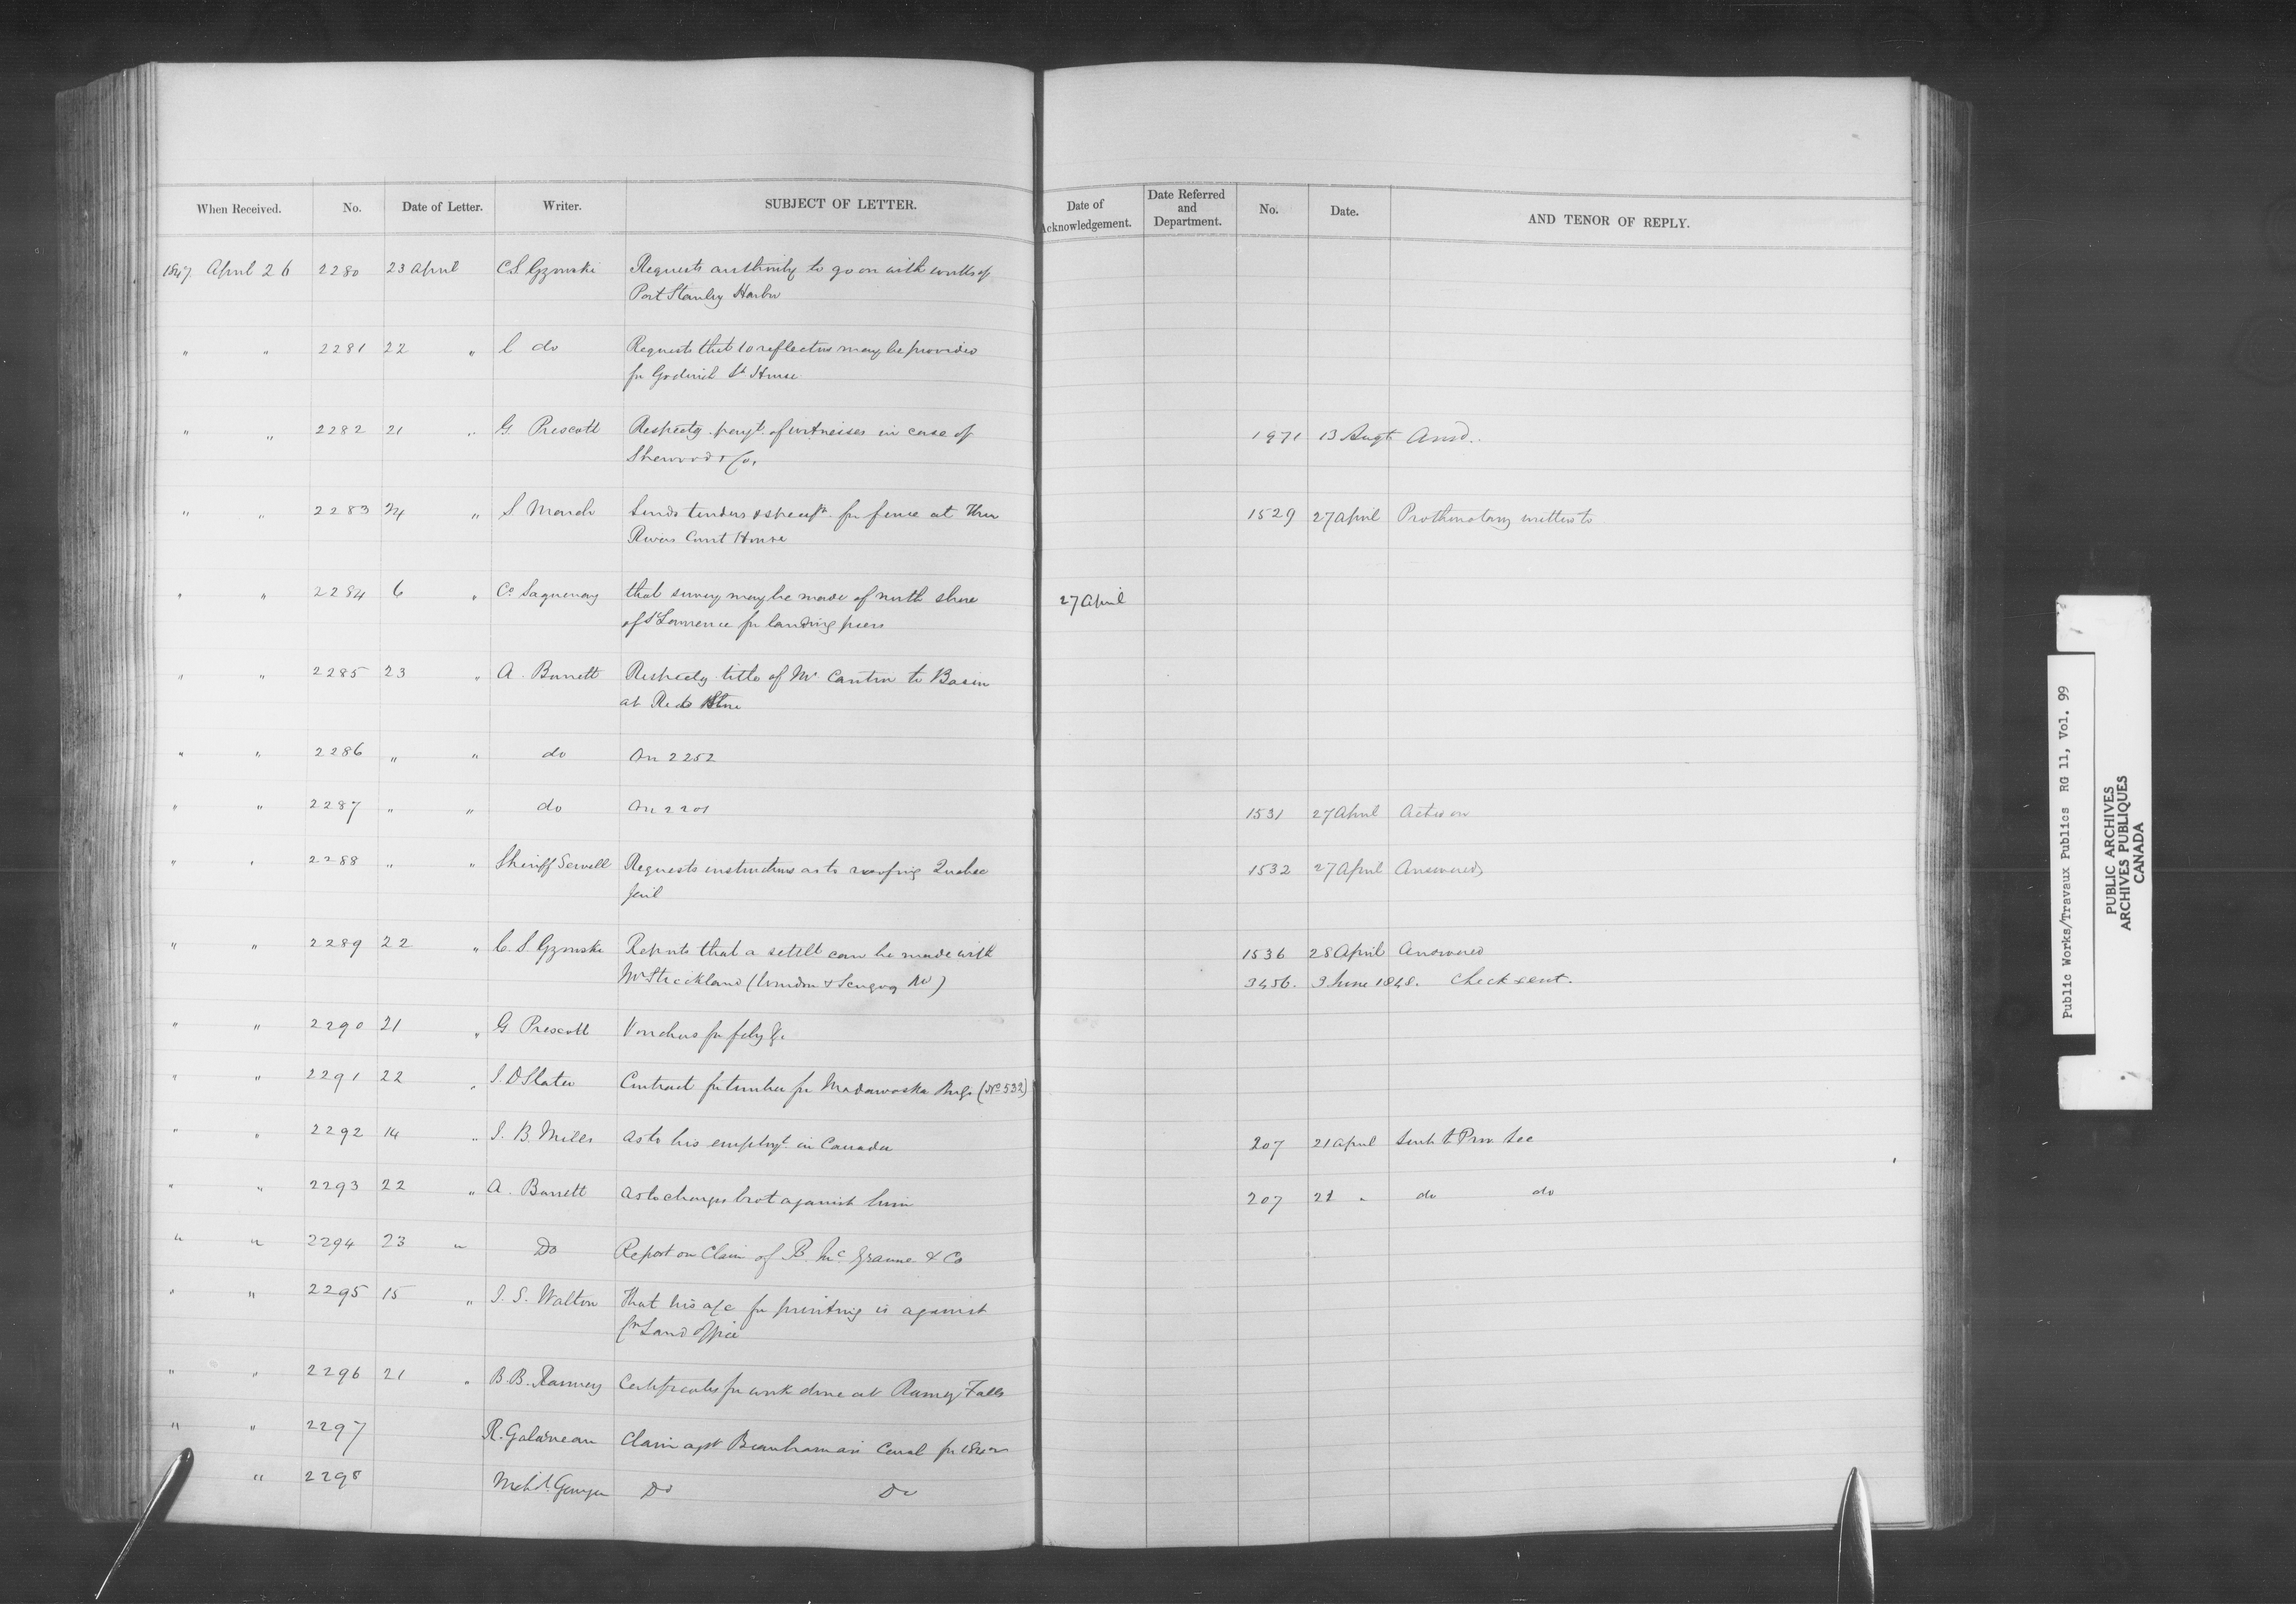 When Received. No. Date of Letter. Writer. SUBJECT OF LETTER. Date of Acknowledgement. Date Referred and Department. No. Date. AND TENOR OF REPLY.
1847 April 26 2280 23 April C.S. Gzowski Requests authority to go on with works of
Port Stanley Harbor
" " 2281 22 " C do Requests that 10 reflectors may be provided
for Goderich Lt House
" " 2282 21 " G Prescott Respectg payt. of witnesses in case of 1971 13 Augt Ansd.
Sherwood & Co,
" " 2283 24 " S Sends tenders & specifn. for fence at Three 1529 27 April Prothonotary written to
Rivers Court House
" " 2284 6 " Co Saguenay that survey may be made of north shore 27 April
of St Lawrence for landing piers
" " 2285 23 " A. Barrett Respectg title of Mr Cantin to Basin
at Red Store
" " 2286 " " do On 2252
" " 2287 " " do On 2201 1531 27 April Acted on
" " 2288 " " Sheriff Sewell Requests instructions as to roofing Quebec 1532 27 April Answered
Jail
" " 2289 22 " C.S. Gzowski Reports that a settlt can be made with 1536 28 April Answered
Mr Strickland (Windsor & Scugog Rd) 3456. 3 June 1848. Check sent.
" " 2290 21 " G Prescott Vouchers for feby &c
" " 2291 22 " J.D Slater Contract for timber for Madawaska Bridge (No 532)
" " 2292 14 " J.B. Mills As to his employt. in Canada 207 21 April Sent to Prov. Sec
" " 2293 22 " A. Barrett As to charges brot against him 207 21 " do do
" " 2294 23 " Do Report on Claim of B. Mc & Co
" " 2295 15 " J.S. Walton That his a/c for printing is against
Crn Land Office
" " 2296 21 " B.B. Ranney Certificates for work done at Ranney Falls
" " 2297 R. Galarneau Claim agst Beauharnois Canal for
" 2298 Do Do
Public Works/Travaux Publics RG 11, Vol. 99
PUBLIC ARCHIVES
ARCHIVES PUBLIQUES
CANADA